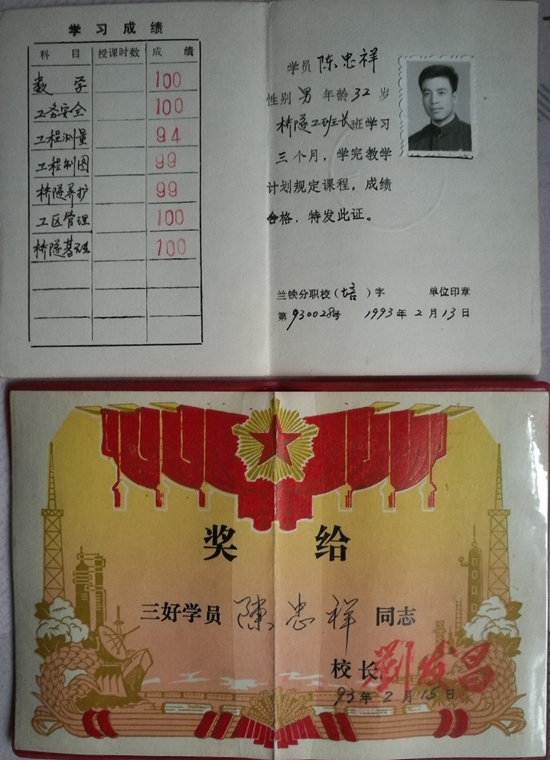 学习成绩
科目 授课时数 成绩
数学 100
工务安全 100
工程测量 94
工程制图 99
桥隧养护 99
工区管理 100
桥隧基础 100
学员 陈忠祥
性别 男 年龄 32 岁
桥隧工班长班学习
三个月，学完教学
计划规定课程，成绩
合格，特发此证。
兰铁分职校（培）字 单位印章
第930028号 1993年2月13日
奖给
三好学员 陈忠祥 同志
校长 刘发昌
93年2月15日